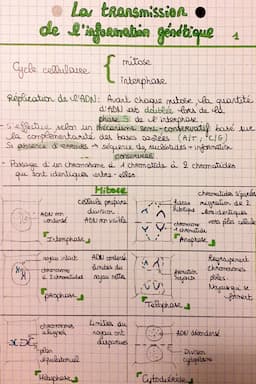 La transmission
de l'information génétique
1
Cycle cellulaire { mitose
interphase
Réplication de l'ADN : Avant chaque mitose la quantité
d'ADN est doublée lors de la
phase S de l'interphase
- S'effectue selon un mécanisme semi-conservatif basé sur
la complémentarité des bases azotées (A/T, C/G)
Si absence d'erreurs → séquence de nucléotides + information
conservée
- Passage d'un chromosome à 1 chromatide à 2 chromatides
qui sont identiques entre elles
Mitose
ADN non
condensé
cellule prépare
division
ADN non visible
Interphase
fuseau
chromatides
migration de 2
lots identiques
vers pôles cellule
Anaphase
noyau intact
chromosome
à 2 chromatides
ADN condensé
limites du
noyau nettes
prophase
Regroupement
chromosomes
pôles
Noyaux qui se
forment
Telophase
chromosomes
alignés
plan
équatorial
Limites du
noyau ont
disparues
Métaphase
ADN décondensé
Division
cytoplasme
Cytodiérèse